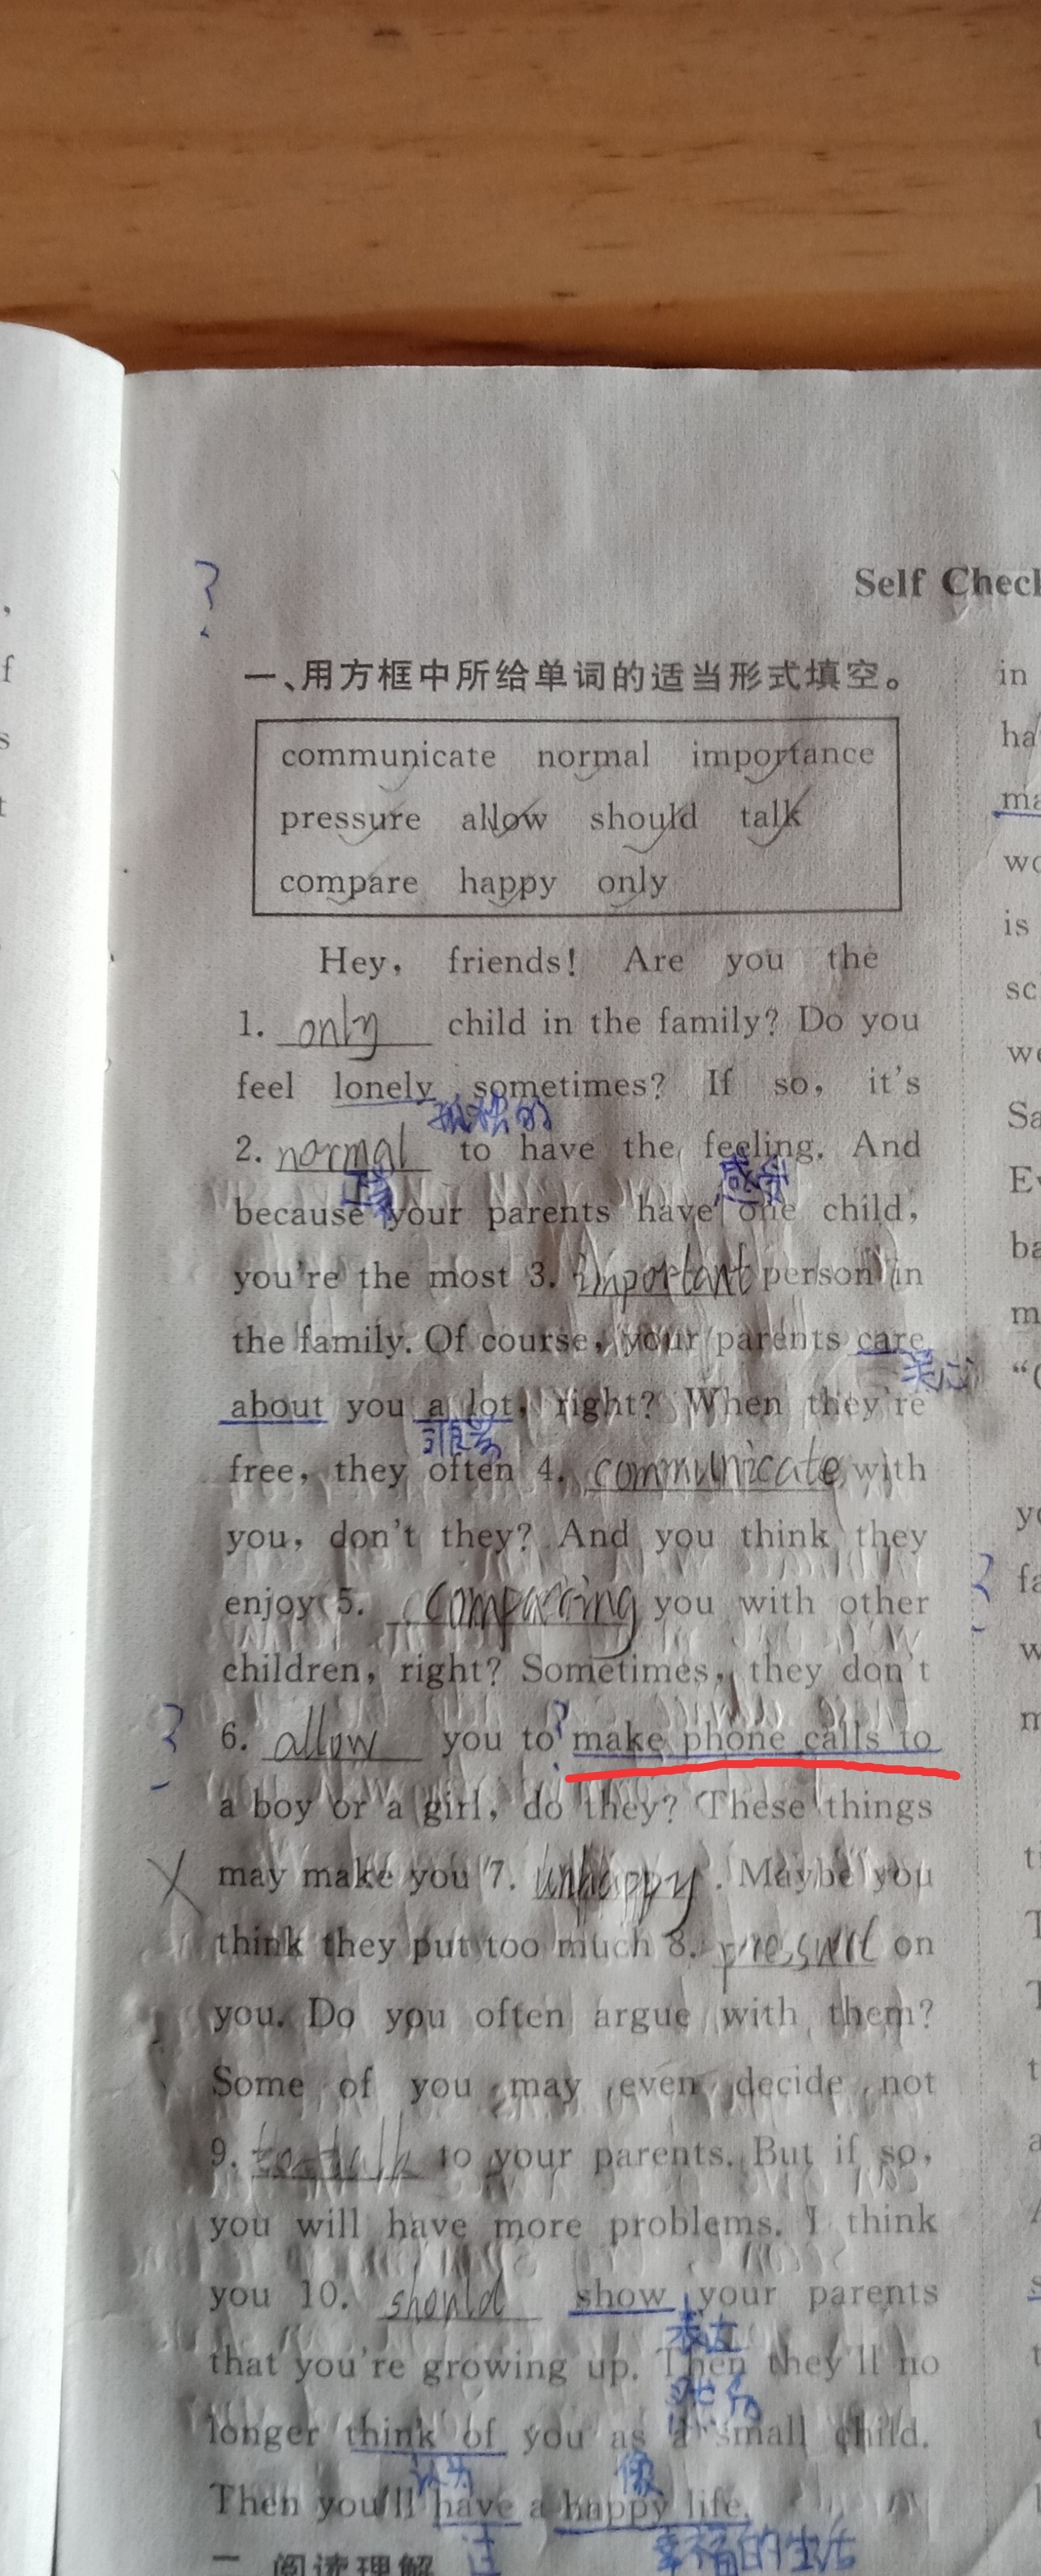 ,
f
s
t
?
Self Check
一、用方框中所给单词的适当形式填空。
communicate normal importance
pressure allow should talk
compare happy only
Hey, friends! Are you the
1. only child in the family? Do you
feel lonely sometimes? If so, it's
孤独的
2. normal to have the feeling. And
感觉
because your parents have one child,
you're the most 3. important person in
the family. Of course, your parents care
关心
about you a lot, right? When they're
很多
free, they often 4. communicate with
you, don't they? And you think they
enjoy 5. comparing you with other
children, right? Sometimes, they don't
? 6. allow you to ? make phone calls to
a boy or a girl, do they? These things
X may make you 7. unhappy. Maybe you
think they put too much 8. on
you. Do you often argue with them?
Some of you may even decide not
9. to talk to your parents. But if so,
you will have more problems. I think
you 10. should show your parents
表达
that you're growing up. Then they'll no
longer think of you as a small child.
认为 像
Then you'll have a happy life.
过 幸福的生活
二、阅读理解
in
ha
ma
wo
is
sc
we
Sa
Ev
ba
m
"C
yo
? fa
w
m
t
T
T
t
a
A
s
t
t